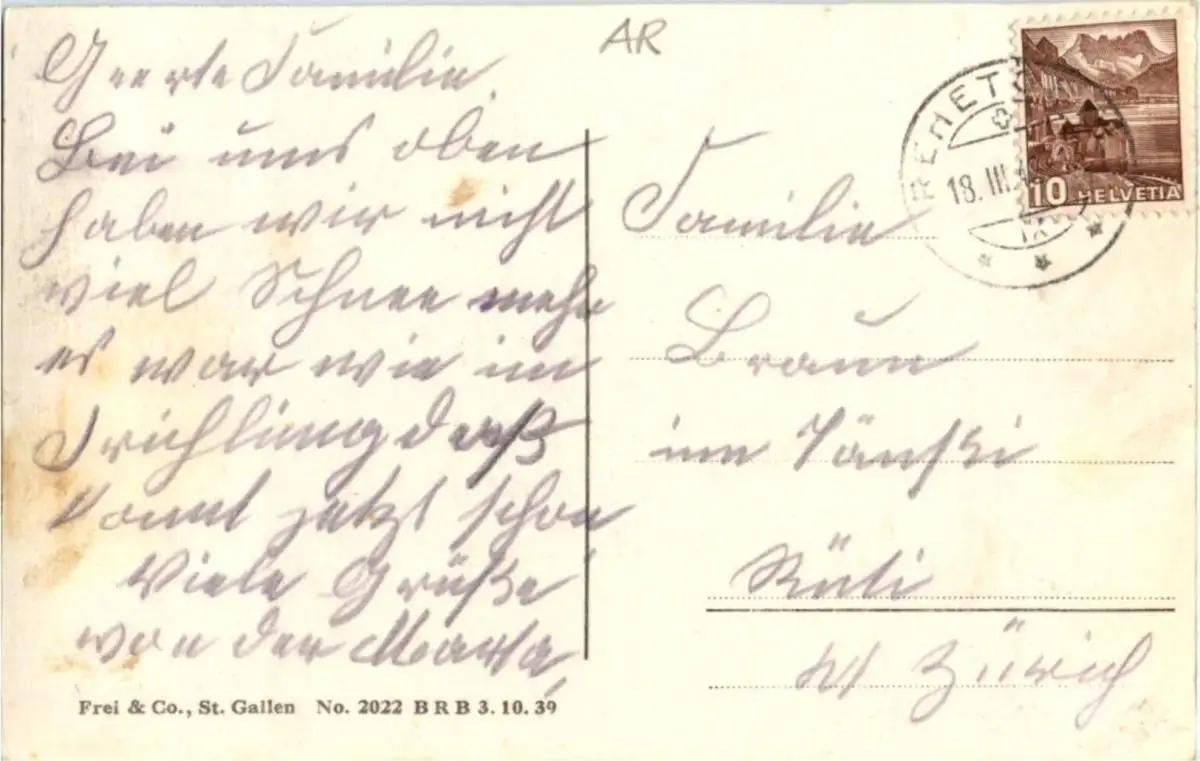 AR
Geerte Familie.
Bei uns oben
haben wir nicht
viel Schnee mehr
es war wie im
Frichlinng daß
komt jetzt schon
Viele Grüße
von der Marta,
Frei & Co., St. Gallen No. 2022 BRB 3. 10. 39
REHETO
18. III.
IX
10 HELVETIA
Familie
Braun
im
Rüti
Kt Zürich